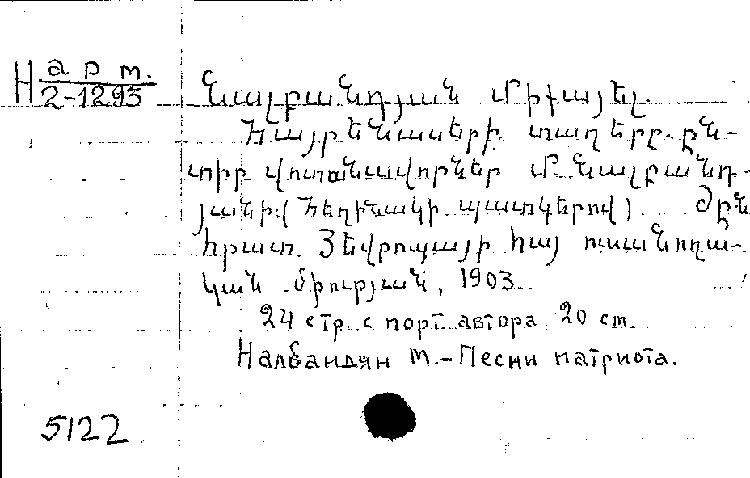 Н арт.
2-1293
Նալբանդյան Միքայել.
Հայրենասերի տաղերը. ըն-
տիր վոտանավորներ Մ. Նալբանդ-
յանի (հեղինակի պատկերով)
հրատ. Յեվրոպայի հայ ուսանողա-
կան միության, 1903.
24 стр. с порт. автора. 20 cm.
Налбандян М. - Песни патриота.
5122